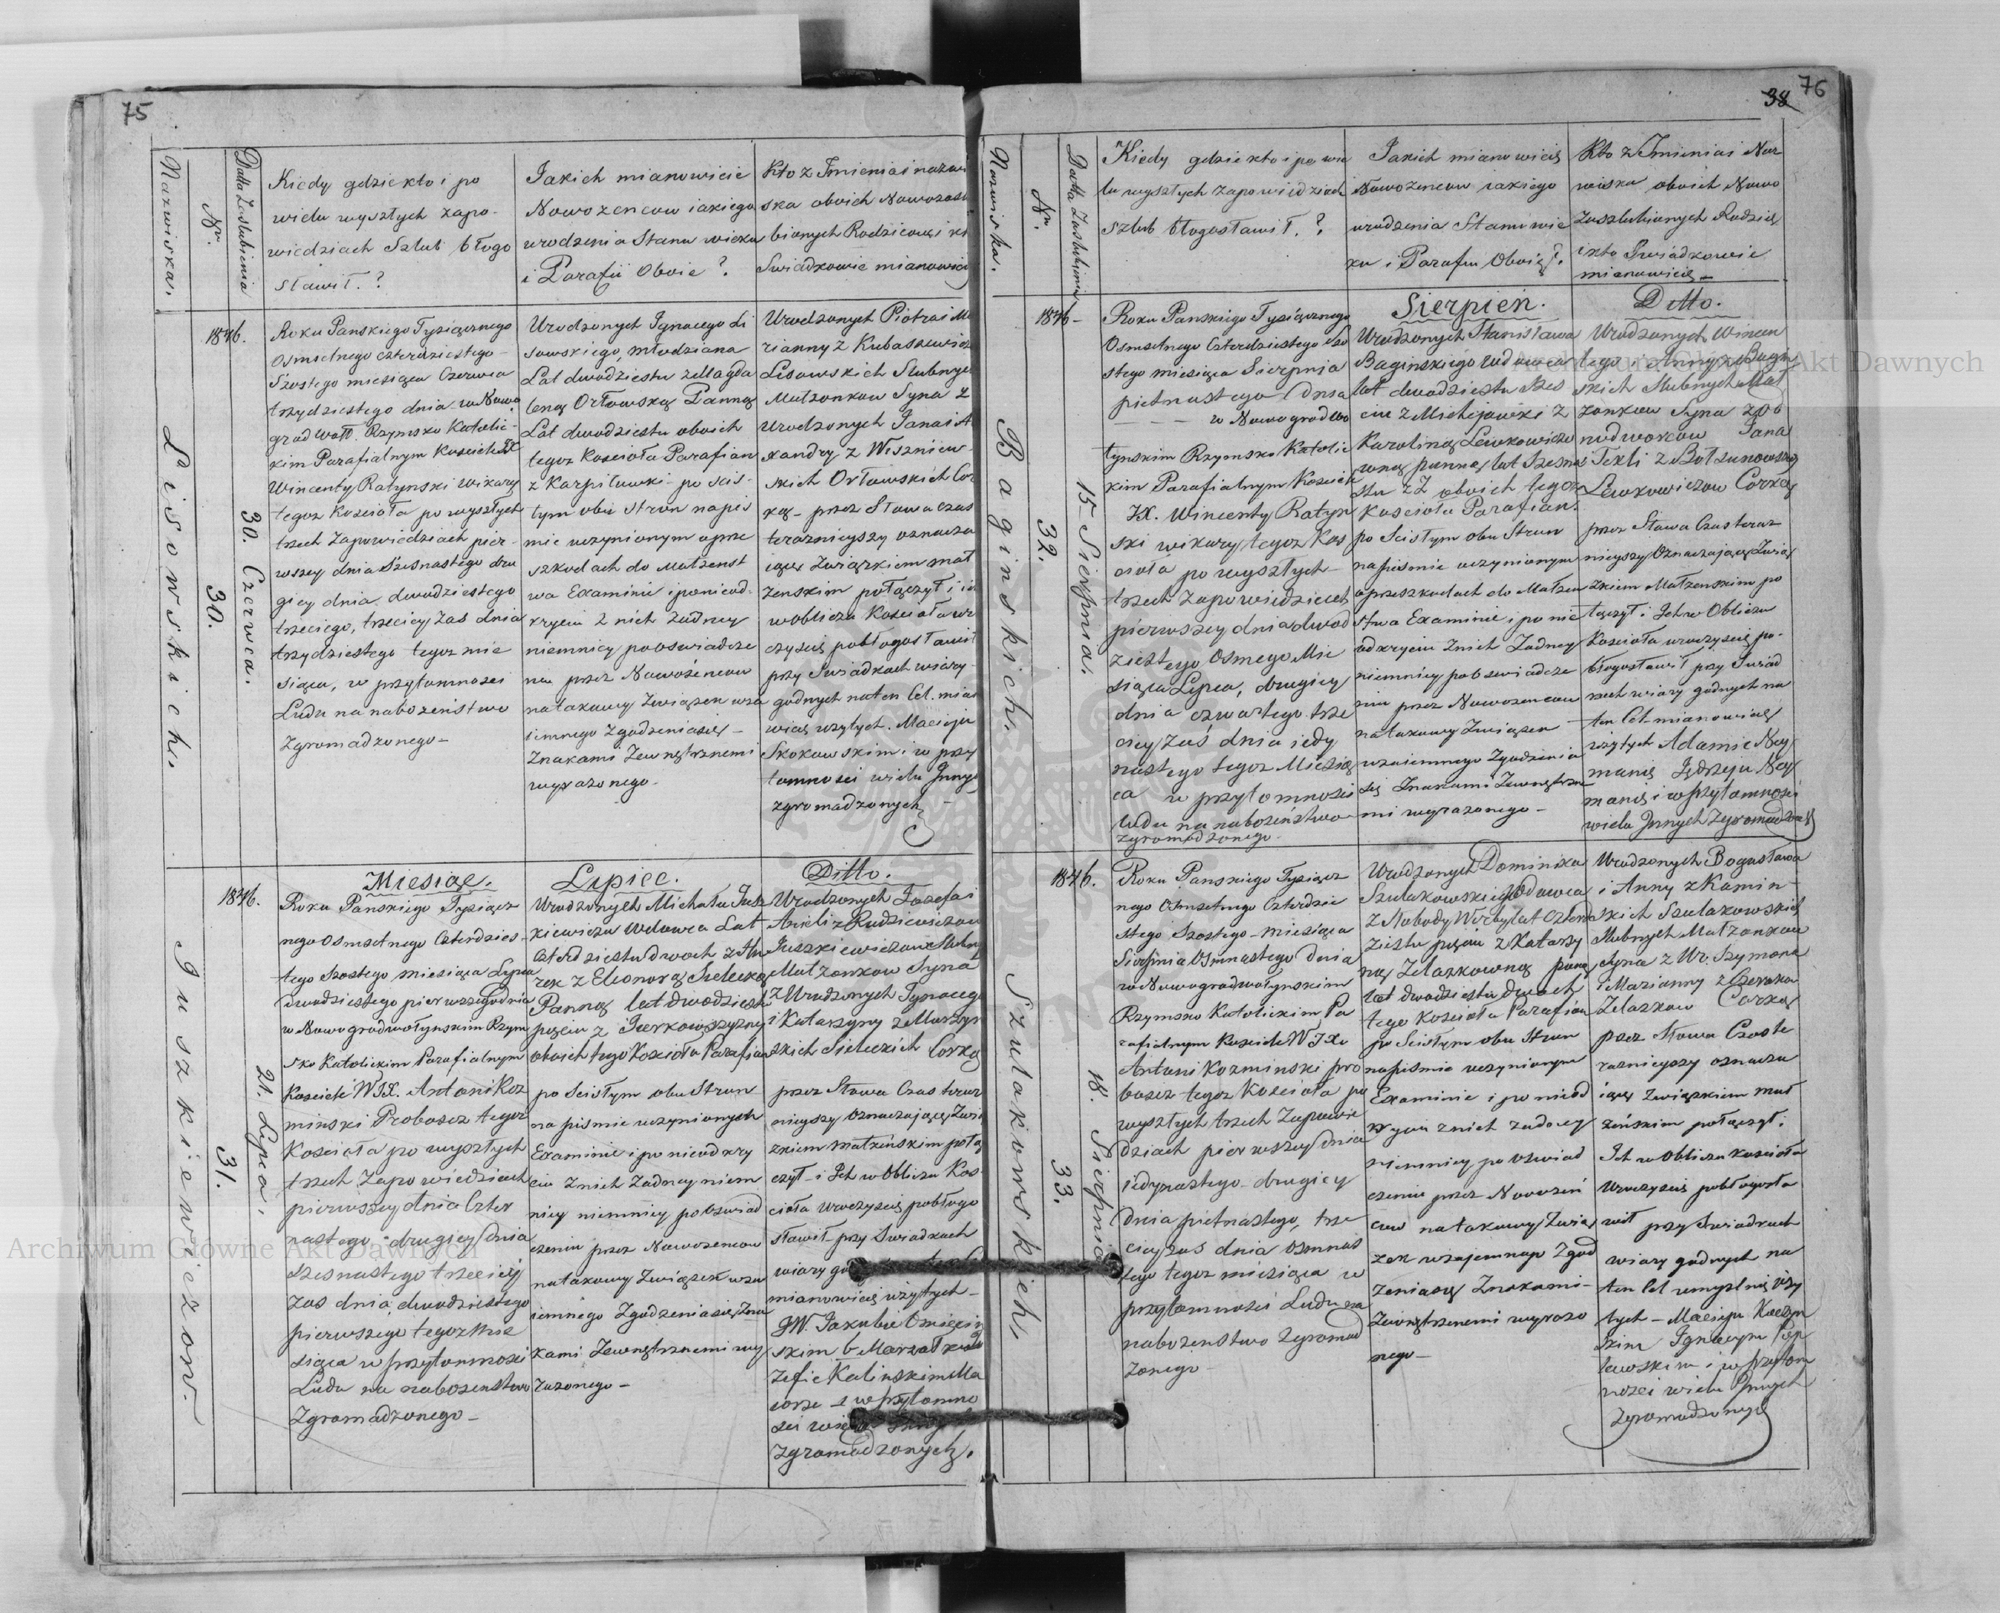 75
Nazwiska.
Nr.
Datta Zaslubienia
Kiedy gdzie kto i po
wielu wyszłych zapo-
wiedziach Szlub błogo
sławił. ?
Jakich mianowicie
Nowozencow iakiego
urodzenia Stanu wieku
i Parafii Oboie ?
Kto z Jmienia i nazwi
ska oboich Nowozaslu
bionych Rodzicow, i kt
Swiadkowie mianowici
Lisowskich.
1846.
30.
30. Czerwca.
Roku Panskiego Tysiącznego
Osmsetnego czterdziestego
Szostego miesiąca Czerwca
trzydziestego dnia w Nowo
grad Woł. Rzymsko Katolic-
kim Parafialnym Kosciele JX
Wincenty Ratynski Wikary
tegoz Kościoła po wyszłych
trzech Zapowiedziach pier-
wszey dnia Szesnastego dru
giey dnia dwudziestego
trzeciego, trzeciey zas dnia
trzydziestego tegoz mie
siąca, w przytomnosci
Ludu na nabozeństwo
Zgromadzonego-
Urodzonych Jgnacego Li
sowskiego, młodziana
Lat dwudziestu z Magda
leną Orłowską Panną
Lat dwudziestu oboich
tegoz Kościoła Parafian
z Karpiłuwki po scis-
łym obu Stron napis
mie uczynionym o prze
szkodach do Małzenst
wa Examinie i ponieod-
kryciu z nich Żadney
niemniey po oswiadcze
niu przez Nowożencow
na takowy Związek wza
iemnego Zgodzenia się -
Znakami Zewnętrznemi
wyrazonego-
Urodzonych Piotra i Ma
rianny z Kubaszewicz
Lisowskich Slubnych
Małzonkow Syna z
Urodzonych Jana i A
xandry z Wiszniew-
skich Orłowskich Cor
ką - przez Słowa czas
teraznieyszy oznacza
iące Związkiem mał
żenskim połączył i ic
w obliczu Kościoła uro
czyscie pobłogosławił
przy Swiadkach wiary-
godnych na ten Cel. mia
wicie wzytych. Macieju
Skokowskim i w przy
tomnosci wielu Jnnych
zgromadzonych -
Juszkiewiczow.
1846.
31.
21. Lipca.
Miesiąc. Lipiec. Ditto.
Roku Panskiego Tysiącz
nego Osmsetnego Czterdzies-
tego Szostego miesiąca Lipca
Dwudziestego pierwszego dnia
w Nowogradwołynskim Rzym
sko Katolickim Parafialnym
Kosciele WJX. Antoni Koz
minski Proboszcz tegoz
Kościoła po wyszłych
trzech Zapowiedziach
pierwszey dnia Czter
nastego - drugiey dnia
szesnastego trzeciey
zas dnia dwudziestego
pierwszego tegoz Mie
siąca w przytomnosci
Ludu na nabozenstwo
Zgromadzonego-
Urodzonych Michała Jusz
kiewicza Wdowca Lat
czterdziestu dwoch z
z Eleonorą Sielecką
Panną lat dwudziestu
pięciu z
oboich tego Kościoła Parafian
po Scisłym obu Stron
na pismie uczynionych
Examinie i po nieodkry
ciu Znich Zadney niem
niey niemniey po Oswiad
czeniu przez Nowozencow
na takowy Związek wza
iemnego Zgodzenia się Zna
kami Zewnętrznemi wy
razonego-
Urodzonych Jozefa i
Anieli z Rudziewiczow
Juszkiewiczow Slubny
Małzonkow Syna
z Urodzonych Jgnacego
i Katarzyny z Marszyn
skich Sieleckich Corką
przez Słowa Czas teraz
nieyszy oznaczaiące Zwią
zkiem małżeńskim połą
czył - i Jch w Obliczu Kos
cioła Uroczyscie pobłogo
sławił przy Swiadkach
wiary
mianowicie użytych -
JW. Jakubie
skim b. Marszałku
Kalinskim Ma
iorze - i w przytomno
sci wielu
zgromadzonych.
76
38
Nazwiska.
Nr.
Datta Zaslubienia
Kiedy gdzie kto i po wie
lu wyszłych zapowiedziach
szlub błogosławił. ?
Jakich mianowicie
Nowozencow iakiego
urodzenia Stanu wie
ku i Parafii Oboie ?
Kto z Jmienia i Naz
wiska oboich Nowo
zaszlubionych Rodzice
i kto Swiadkowie
mianowicie -
Baginskich.
1846-
32.
15. Sierpnia.
Sierpien. Ditto.
Roku Panskiego Tysiącznego
Osmsetnego Czterdziestego Szo
stego miesiąca Sierpnia
pietnastego dnia
w Nowogradwo
łynskim Rzymsko Katolic
kim Parafialnym Kosciele
JX. Wincenty Ratyn
ski wikary tegoz Kos
cioła po wyszłych -
trzech Zapowiedziach
pierwszey dnia dwud
ziestego Osmego Mie
siąca Lipca, drugiey
dnia czwartego trze
ciey zaś dnia iedy
nastego tegoz Miesią
ca w przytomnosci
Ludu na nabożeństwo
Zgromadzonego-
Urodzonych Stanisława
Baginskiego wdowca
lat dwudziestu szes
ciu z Michejowki z
Karoliną Lewkowiczo
wną panną lat Szesna
stu z Z oboich tegoz
Kościoła Parafian.
po Scisłym obu Stron
na pismie uczynionym
o przeszkodach do Małzen
stwa Examinie i po nie
odkryciu Znich Zadney
niemniey po oswiadcze
niu przez Nowozencow
na takowy Związek
wzaiemnego Zgodzenia
się Znakami Zewnętrzne
mi wyrazonego -
Urodzonych Wincen
tego i Anny z
skich Slubnych Mał
zonkow Syna z po
nudworcow Jana
i Tekli z Bołsunowskich
Lewkowiczow Corką
przez Słowa Czas teraz
nieyszy Oznaczaiące Zwią
zkiem Małżenskim po
łączył i Jch w Obliczu
Kościoła uroczyscie po-
błogosławił przy Swiad
kach wiary godnych na
ten Cel mianowicie
wzytych Adamie Ney
manie Jędrzeju Ney
manie i w przytomnosci
wielu Jnnych Zgromadzonych
Szulakowskich.
1846.
33.
18. Sierpnia
Roku Panskiego Tysiącz
nego Osmsetnego Czterdzie
stego Szostego - miesiąca
Sierpnia Osmnastego dnia
w Nowogradwołynskim
Rzymsko Katolickim Pa
rafialnym Kosciele WJX.
Antoni Kozminski pro
boszcz tegoz Kościoła po
wyszłych trzech Zapowie
dziach pierwszey dnia
iedynastego - drugiey
dnia piętnastego, trze
ciey zas dnia Osmnas
tego tegoz miesiąca w
przytomnosci Ludu na
nabozenstwo Zgromad
zonego-
Urodzonych Dominika
Szulakowskiego Wdowca
z Słobody lat czter
dziestu pięciu z Katarzy
ną Zelazkowną panną
lat dwudziestu dwoch
tego Kościoła Parafian
po Scisłym obu Stron
na pismie uczynionym
Examinie i po nieod
kryciu znich zadney
niemniey po oswiad
czeniu przez Nowozen
cow na takowy Zwią
zek wzaiemnego Zgod
zenia się Znakami -
Zewnętrznemi wyrazo
nego-
Urodzonych Bogusława
i Anny z Kamin-
skich Szulakowskich
Slubnych Małzonkow
Syna z Ur. Szymona
i Marianny z
Zelazkow Corką
przez Słowa Czas te
raznieyszy oznacza
iące Związkiem mał
żeńskim połączył i
Jch w Obliczu Kościoła
Uroczyscie pobłogosła
wił przy Swiadkach
wiary godnych na
ten Cel umyslnie Uży
tych - Macieju
skim Jgnacym Pop
ławskim i w przytom
nosci wielu Jnnych
Zgromadzonych
Archiwum Główne Akt Dawnych
Archiwum Główne Akt Dawnych